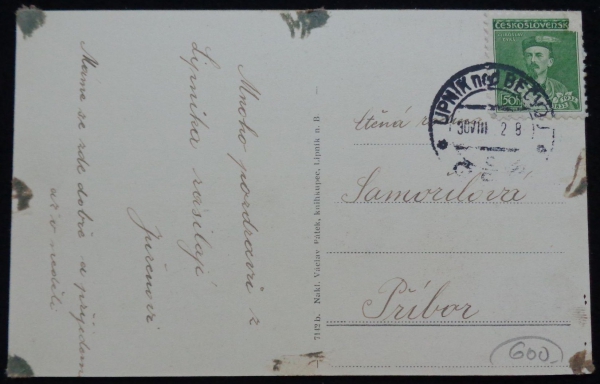 Mnoho pozdravů z
Lipníka zasílají
Jurčnovi
Máme se zde dobře a přijdem
až v neděli
7142 b. Nakl. Václav Válek, knihkupec, Lipník n. B.
ČESKOSLOVENSKO
50h
LIPNÍK nad BEČVOU
30 VIII 32 8
Ctěná
Samorilova
Příbor
600.-